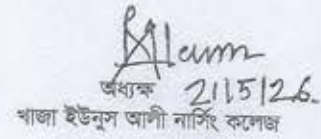 Alam
অধ্যক্ষ 21/5/26.
খাজা ইউনুস আলী নার্সিং কলেজ